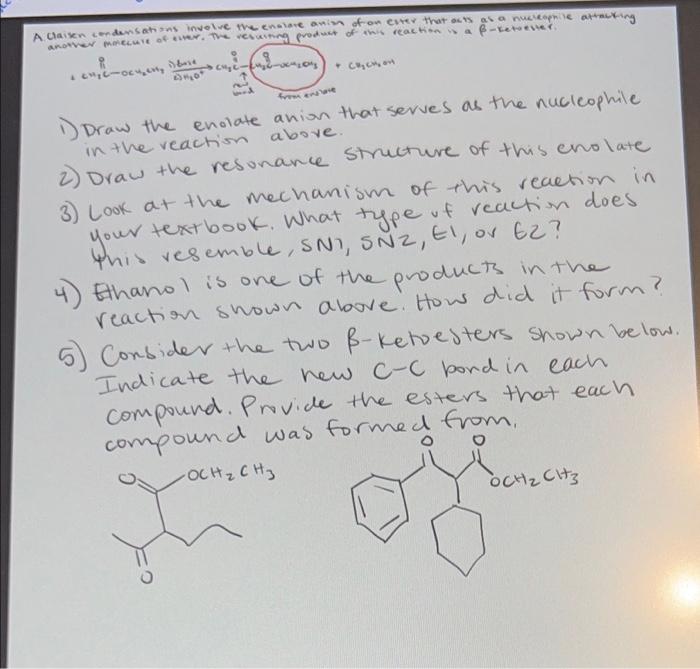 A Claisen condensations involve the enolate anion of an ester that acts as a nucleophile attacking
another molecule of ester. The resulting product of this reaction is a β-ketoester.
O O O
CH3C-OCH2CH3 1) base 2) H3O+ → CH3C-CH2C-OCH2CH3 + CH3CH2OH
new bond from enolate
1) Draw the enolate anion that serves as the nucleophile
in the reaction above.
2) Draw the resonance structure of this enolate
3) Look at the mechanism of this reaction in
your textbook. What type of reaction does
this resemble, SN1, SN2, E1, or E2?
4) Ethanol is one of the products in the
reaction shown above. How did it form?
5) Consider the two β-ketoesters shown below.
Indicate the new C-C bond in each
compound. Provide the esters that each
compound was formed from.
O OCH2CH3
O
O O
OCH2CH3